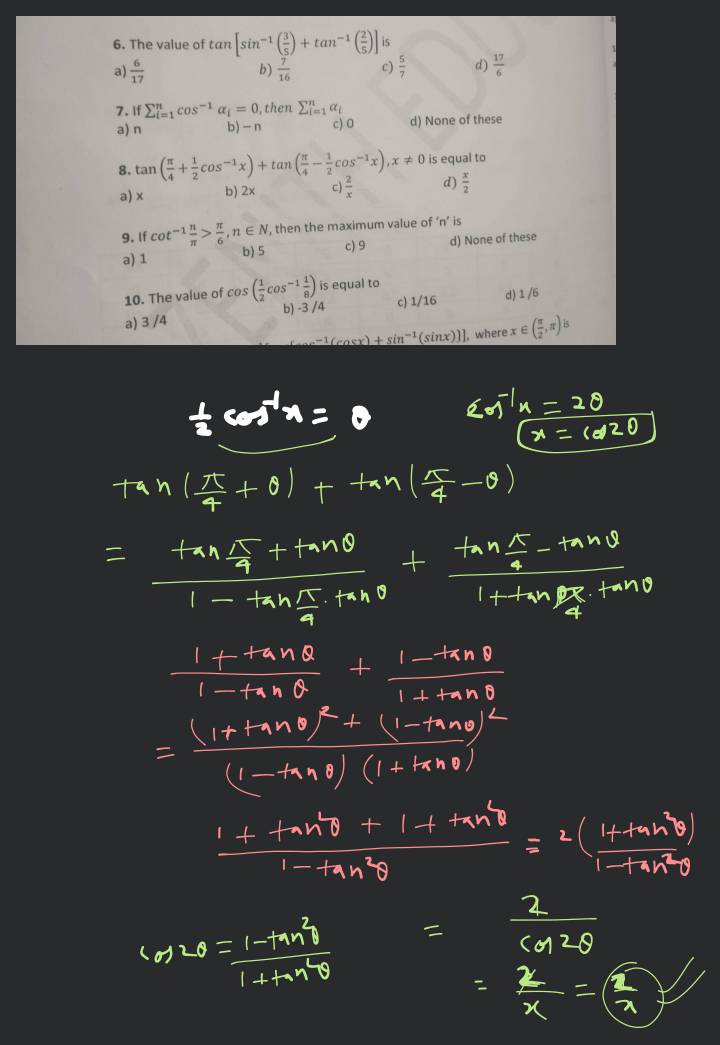 6. The value of tan [sin⁻¹ (3/5) + tan⁻¹ (2/5)] is
a) 6/17 b) 7/16 c) 5/7 d) 17/6
7. If Σⁿᵢ₌₁ cos⁻¹ αᵢ = 0, then Σⁿᵢ₌₁ αᵢ
a) n b) – n c) 0 d) None of these
8. tan (π/4 + 1/2 cos⁻¹x) + tan (π/4 − 1/2 cos⁻¹x), x ≠ 0 is equal to
a) x b) 2x c) 2/x d) x/2
9. If cot⁻¹ n/π > π/6, n ∈ N, then the maximum value of 'n' is
a) 1 b) 5 c) 9 d) None of these
10. The value of cos (1/2 cos⁻¹ 1/8) is equal to
a) 3 /4 b) -3 /4 c) 1/16 d) 1 /6
⁻¹(cosx) + sin⁻¹(sinx)}], where x ∈ (π/2, π) is
ZENITH EDU
1/2 cos⁻¹x = θ cos⁻¹x = 2θ
x = cos2θ
tan (π/4 + θ) + tan (π/4 − θ)
= (tan π/4 + tanθ)/(1 − tan π/4 . tanθ) + (tan π/4 − tanθ)/(1 + tan π/4 . tanθ)
(1 + tanθ)/(1 − tanθ) + (1 − tanθ)/(1 + tanθ)
= ((1+tanθ)² + (1−tanθ)²)/((1−tanθ) (1+tanθ))
(1 + tan²θ + 1 + tan²θ)/(1 − tan²θ) = 2 ((1+tan²θ)/(1−tan²θ))
cos2θ = (1−tan²θ)/(1+tan²θ) = 2/cos2θ
= 2/x = 2/x